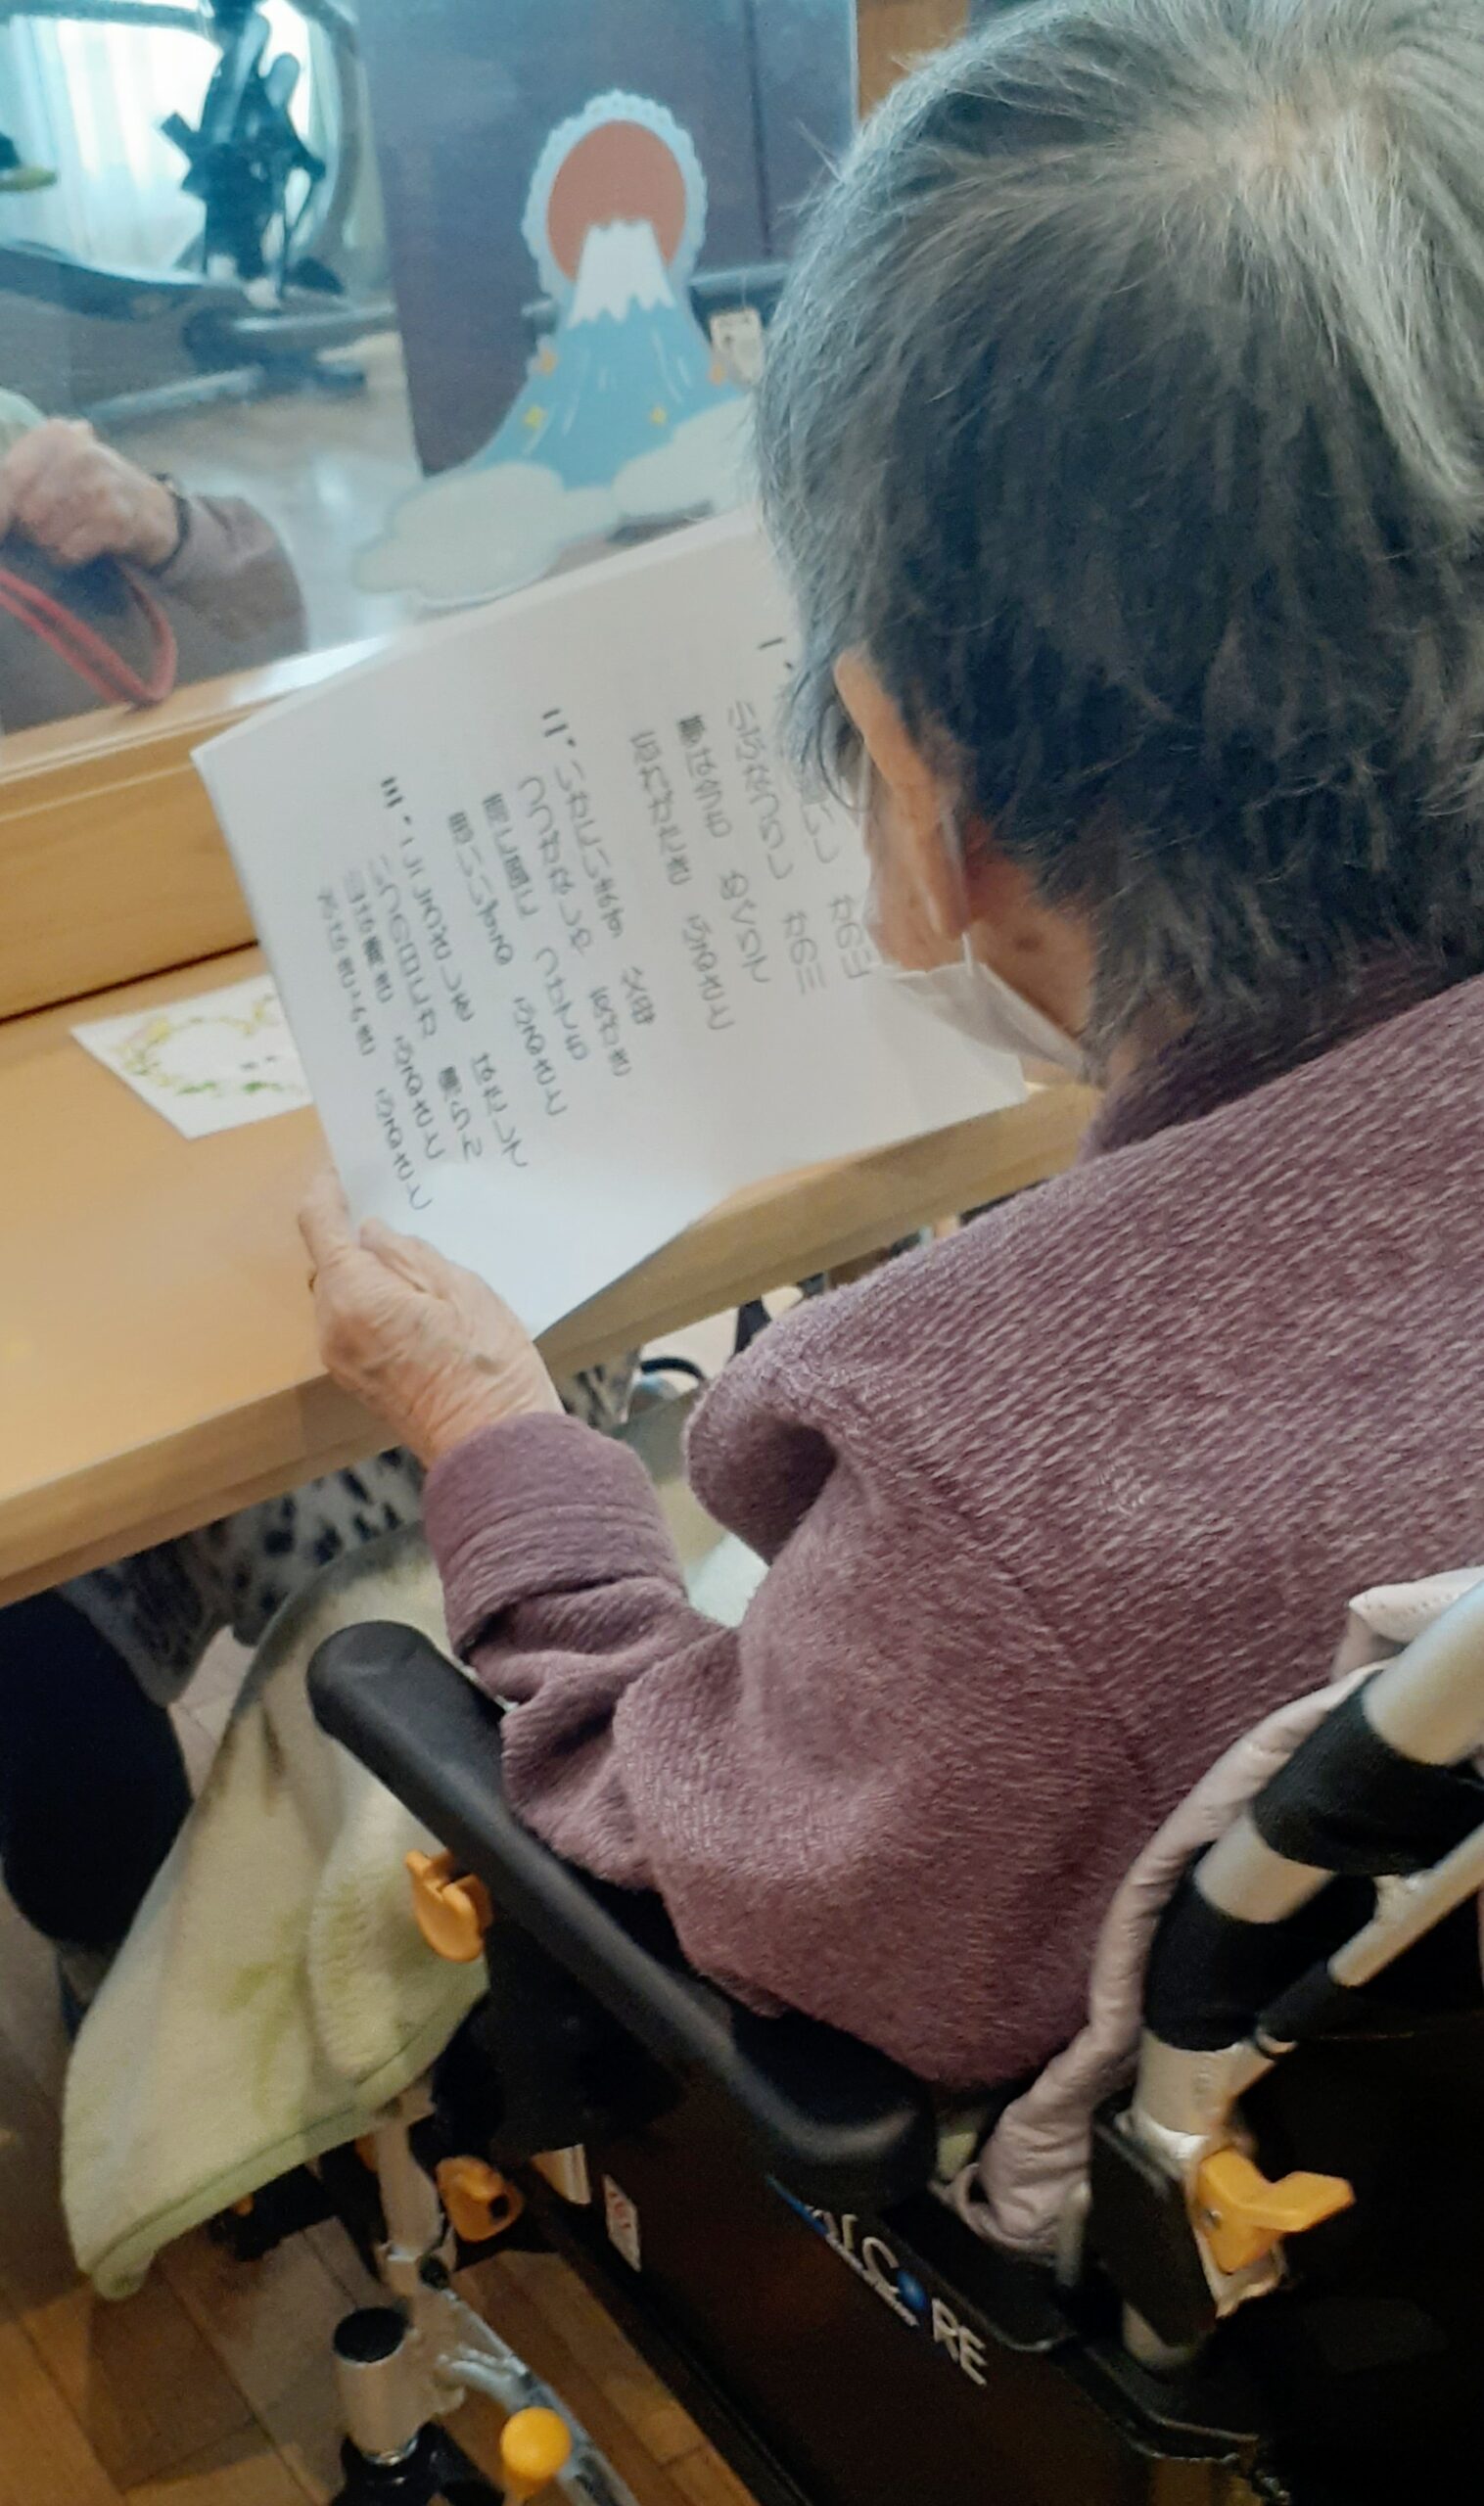 一、
いし かの山
小ぶなつりし かの川
夢は今も めぐりて
忘れがたき ふるさと
二、いかにいます 父母
つつがなしや 友がき
雨に風に つけても
思いいずる ふるさと
三、こころざしを はたして
いつの日にか 帰らん
山は青き ふるさと
水は清き ふるさと
ALCORE